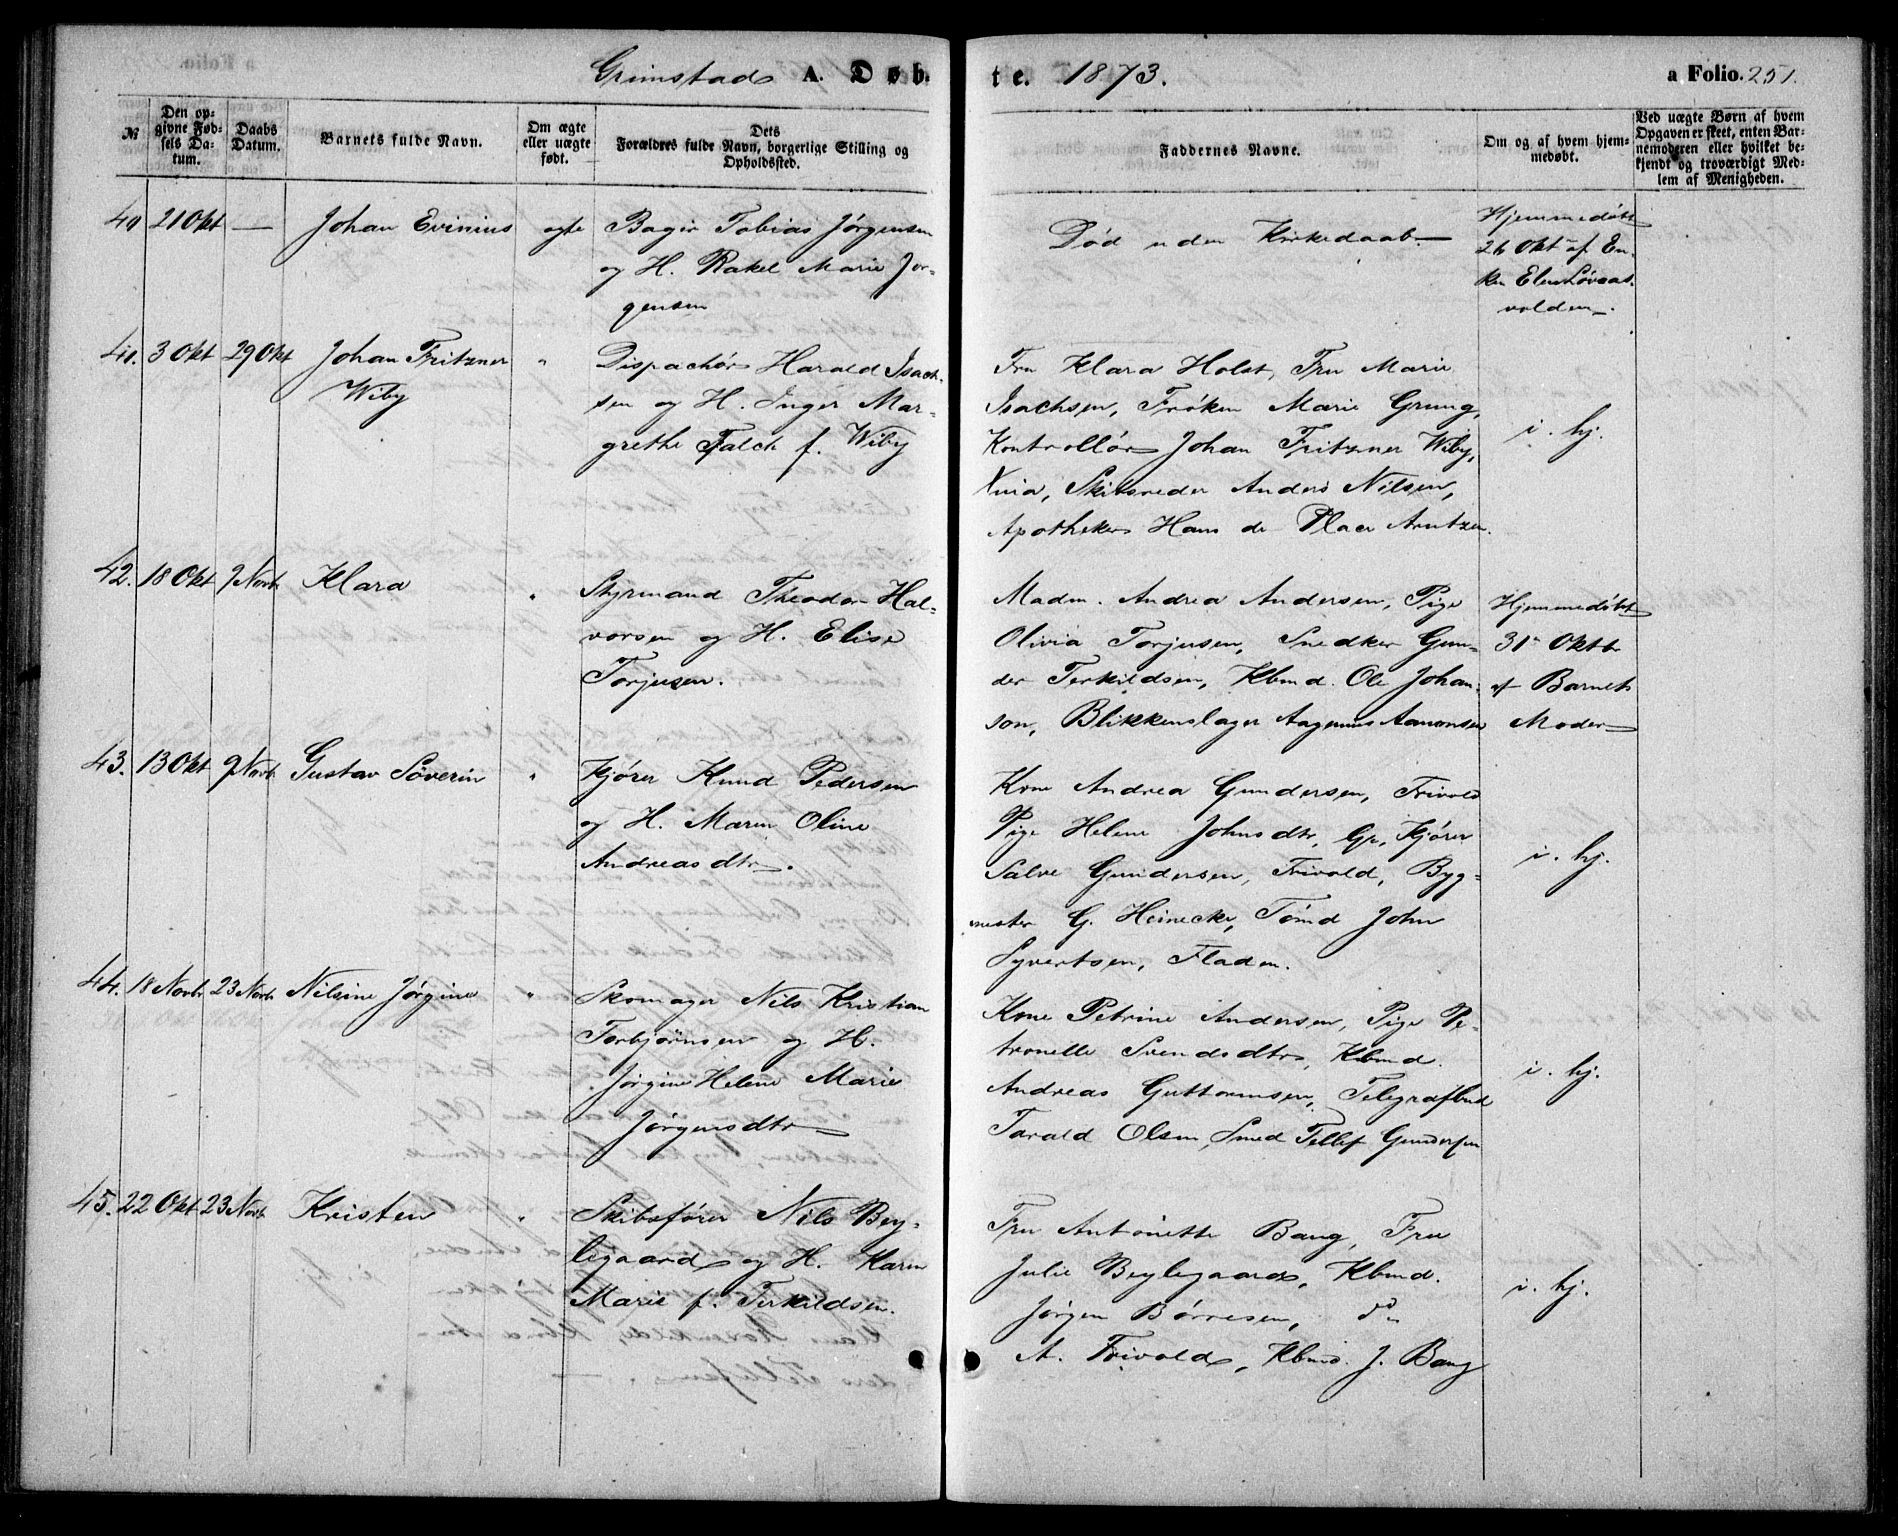 Grimstad A. Døbte. 1873. a Folio. 251.
№
Den opgivne Fødsels Datum.
Daabs Datum.
Barnets fulde Navn.
Om ægte eller uægte født.
Dets Forældres fulde Navn, borgerlige Stilling og Opholdssted.
Faddernes Navne.
Om og af hvem hjemmedøbt.
Ved uægte Børn af hvem Opgaven er skeet, enten Barnemoderen eller hvilket bekjendt og troværdigt Medlem af Menigheden.
40 21 Okt — Johan Evinius ægte
Bager Tobias Jørgensen
og H. Rakel Marie Jør-
gensen
Død uden Kirkedaab
Hjemmedøbt
26 Okt af En-
ken Elen
volden.
41. 3 Okt 29 Okt Johan Fritzner
Wiby
"
Dispachør Harald Isach-
sen og H. Inger Mar-
grethe Falch f. Wiby
Fru Klara Holst, Fru Marie
Isachsen, Frøken Marie Grung,
Kontrollør Johan Fritzner Wiby,
Skibsreder Anders Nilsen,
Apotheker Hans de Place Arntzen.
i. hj.
42. 18 Okt 9 Novbr Klara "
Styrmand Theodor Hal-
vorsen og H. Elise
Torjusen.
Madm. Andrea Andersen, Pige
Olivia Torjusen, Snedker Gun-
der Terkildsen, Kbmd. Ole Johan-
son, Blikkenslager Aagenus Aanonsen
Hjemmedøbt
31 Oktbr
af Barnets
Moder
43. 13 Okt 9 Novbr Gustav Søverin "
Kjører Knud Pedersen
og H. Maren Oline
Andreasdtr.
Kone Andrea Gundersen, Frivold
Pige Helene Johnsdtr, Gr, Kjører
Salve Gundersen, Frivold, Byg-
mester G. Heinecke, Tømd John
Syvertsen, Fladen.
i. hj.
44. 18 Novbr 23 Novbr Nilsine Jørgine "
Skomager Nils Kristian
Torbjørnsen og H.
Jørgine Helene Marie
Jørgensdtr
Kone Petrine Andersen, Pige Pe-
tronelle Svendsdtr, Kbmd.
Andreas Guttormsen, Telegrafbud
Tarald Olsen, Smed Tellef Gundersen
i. hj.
45. 22 Okt 23 Novbr Kristen "
Skibsfører Nils Bey-
legaard og H. Karen
Marie f. Terkildsen.
Fru Antoinette Bang, Fru
Julie Beylegaard, Kbmd.
Jørgen Børresen, do
A. Frivold, Kbmd. J. Bang
i. hj.